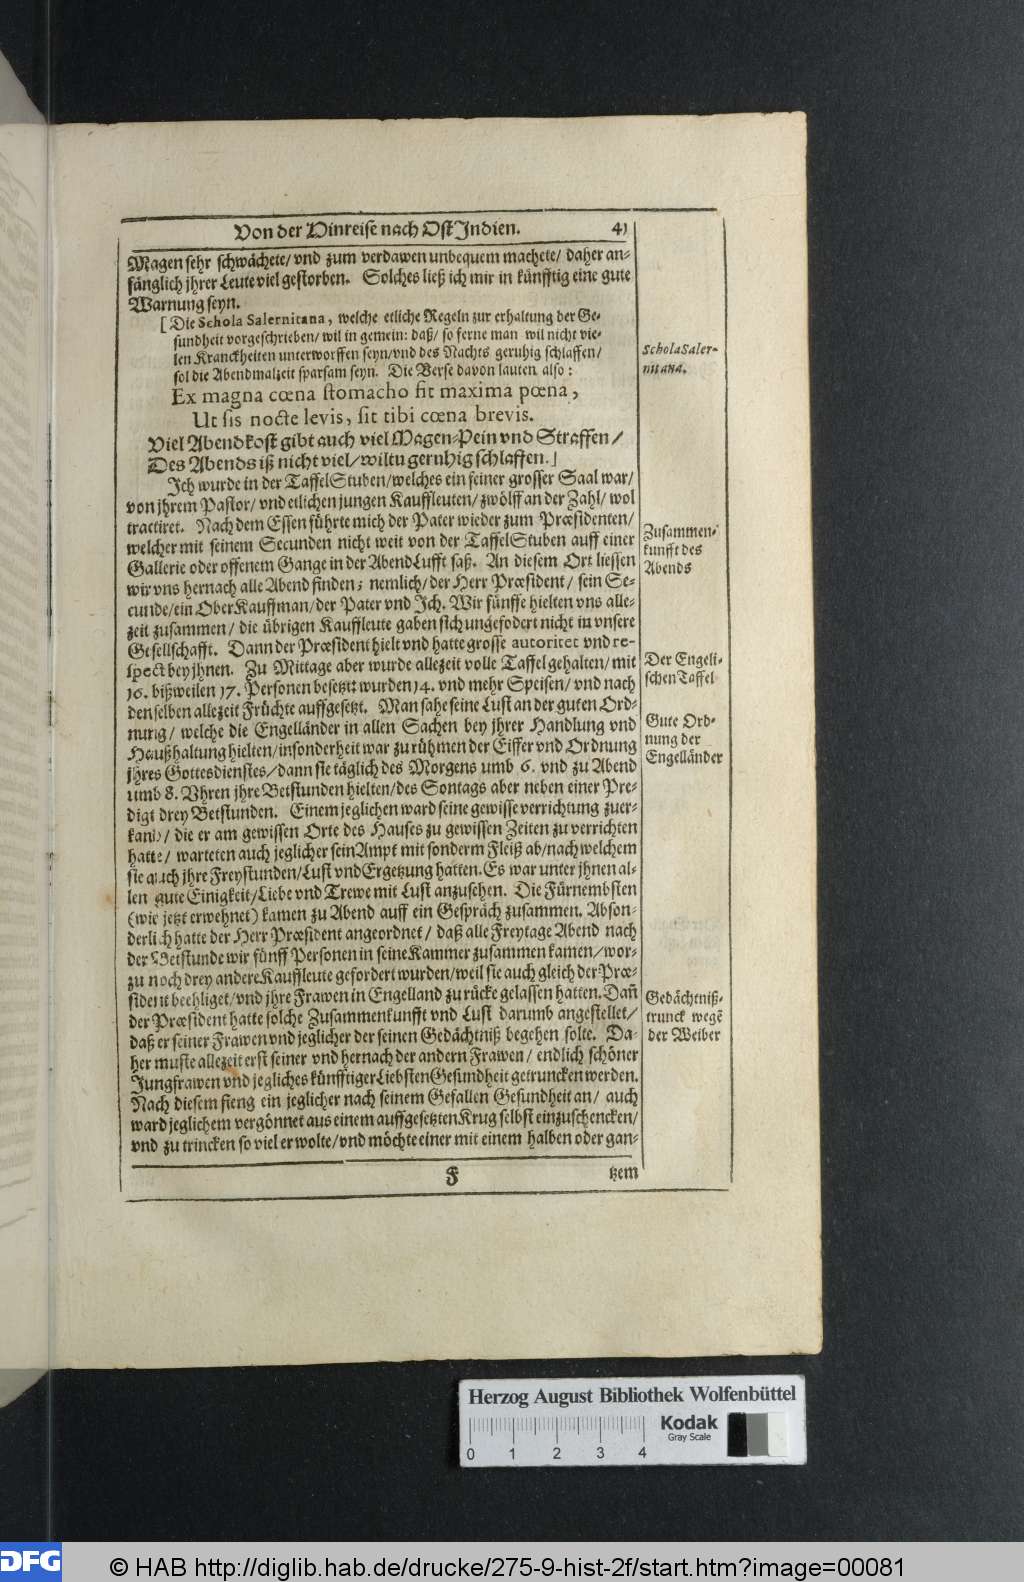 Von der Hinreise nach OstIndien. 41
Magen sehr schwächete/ vnd zum verdawen unbequem machete/ daher an-
fänglich jhrer Leute viel gestorben. Solches ließ ich mir in künfftig eine gute
Warnung seyn.
[Die Schola Salernitana, welche etliche Regeln zur erhaltung der Ge-
sundheit vorgeschrieben/ wil in gemein: daß/ so ferne man wil nicht vie-
len Kranckheiten unterworffen seyn/vnd des Nachts geruhig schlaffen/
sol die Abendmalzeit sparsam seyn. Die Verse davon lauten also:
Schola Saler-
nitana.
Ex magna cœna stomacho fit maxima pœna,
Ut sis nocte levis, sit tibi cœna brevis.
Viel Abendkost gibt auch viel Magen-Pein vnd Straffen/
Des Abends iß nicht viel/wiltu geruhig schlaffen.]
Ich wurde in der TaffelStuben/welches ein feiner grosser Saal war/
von jhrem Pastor/ vnd etlichen jungen Kauffleuten/ zwölff an der Zahl/ wol
tractiret. Nach dem Essen führte mich der Pater wieder zum Præsidenten/
welcher mit seinem Secunden nicht weit von der TaffelStuben auff einer
Gallerie oder offenem Gange in der AbendLufft saß. An diesem Ort liessen
wir vns hernach alle Abend finden; nemlich/ der Herr Præsident/ sein Se-
cunde/ein OberKauffman/der Pater vnd Ich. Wir fünffe hielten vns alle-
zeit zusammen/ die übrigen Kauffleute gaben sich ungefodert nicht in vnsere
Gesellschafft. Dann der Præsident hielt vnd hatte grosse autoritet vnd re-
spect bey jhnen. Zu Mittage aber wurde allezeit volle Taffel gehalten/ mit
16. bißweilen 17. Personen besetzt: wurden 14. vnd mehr Speisen/ vnd nach
denselben allezeit Früchte auffgesetzt. Man sahe seine Lust an der guten Ord-
nung/ welche die Engelländer in allen Sachen bey jhrer Handlung vnd
Haußhaltung hielten/insonderheit war zu rühmen der Eiffer vnd Ordnung
jhres Gottesdienstes/dann sie täglich des Morgens umb 6. vnd zu Abend
umb 8. Vhren jhre Betstunden hielten/des Sontags aber neben einer Pre-
digt drey Betstunden. Einem jeglichen ward seine gewisse verrichtung zuer-
kand/ die er am gewissen Orte des Hauses zu gewissen Zeiten zu verrichten
hatte/ warteten auch jeglicher sein Ampt mit sonderm Fleiß ab/nach welchem
sie auch jhre Freystunden/Lust vnd Ergetzung hatten. Es war unter jhnen al-
len gute Einigkeit/Liebe vnd Trewe mit Lust anzusehen. Die Fürnembsten
(wie jetzt erwehnet) kamen zu Abend auff ein Gespräch zusammen. Abson-
derlich hatte der Herr Præsident angeordnet/ daß alle Freytage Abend nach
der Betstunde wir fünff Personen in seine Kammer zusammen kamen/ wor-
zu noch drey andere Kauffleute gefordert wurden/weil sie auch gleich der Præ-
sident beehliget/vnd jhre Frawen in Engelland zu rücke gelassen hatten. Dañ
der Præsident hatte solche Zusammenkunfft vnd Lust darumb angestellet/
daß er seiner Frawen vnd jeglicher der seinen Gedächtniß begehen solte. Da-
her muste allezeit erst seiner vnd hernach der andern Frawen/ endlich schöner
Jungfrawen vnd jegliches künfftiger Liebsten Gesundheit getruncken werden.
Nach diesem fieng ein jeglicher nach seinem Gefallen Gesundheit an/ auch
ward jeglichem vergönnet aus einem auffgesetzten Krug selbst einzuschencken/
vnd zu trincken so viel er wolte/vnd möchte einer mit einem halben oder gan-
Zusammen-
kunfft des
Abends
Der Engeli-
schen Taffel
Gute Ord-
nung der
Engelländer
Gedächtniß-
trunck wegē
der Weiber
F tzem
Herzog August Bibliothek Wolfenbüttel
Kodak
Gray Scale
0 1 2 3 4
DFG
© HAB http://diglib.hab.de/drucke/275-9-hist-2f/start.htm?image=00081